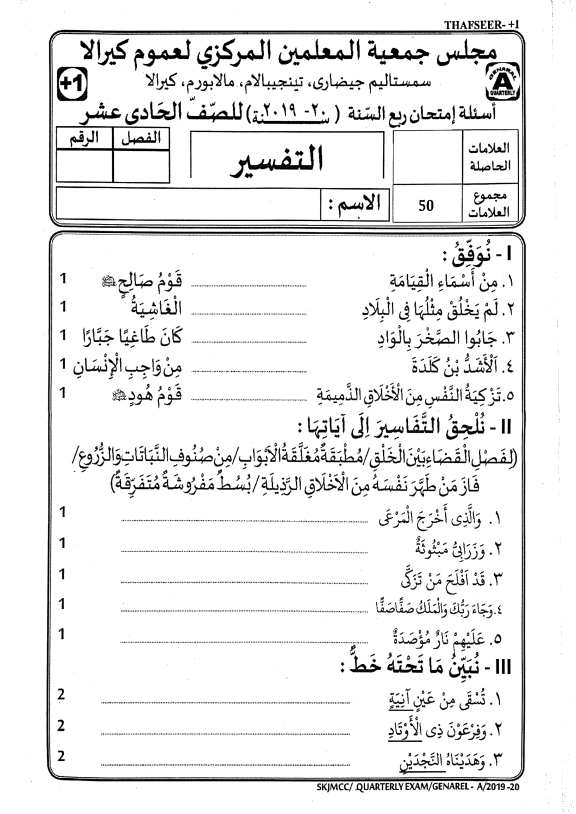 THAFSEER- +1
مجلس جمعية المعلمين المركزي لعموم كيرالا
+1 سمستاليم جيضارى، تينجيبالام، مالابورم، كيرالا GENAREL A QUARTERLY
أسئلة إمتحان ربع السّنة (٢٠-٢٠١٩ سنة) للصّفّ الحادى عشر
العلامات الحاصلة
التفسير
الفصل الرقم
مجموع العلامات 50
الاسم :
I - نُوَفِّقُ :
١. مِنْ أَسْمَاءِ الْقِيَامَةِ ........ قَوْمُ صَالِحٍ ﷺ 1
٢. لَمْ يَخْلُقْ مِثْلُهَا فِى الْبِلَادِ ........ الْغَاشِيَةُ 1
٣. جَابُوا الصَّخْرَ بِالْوَادِ ........ كَانَ طَاغِيًا جَبَّارًا 1
٤. اَلْأَشَدُّ بْنُ كَلَدَةَ ........ مِنْ وَاجِبِ الْإِنْسَانِ 1
٥. تَزْكِيَةُ النَّفْسِ مِنَ الْأَخْلَاقِ الذَّمِيمَةِ ........ قَوْمُ هُودٍ ﷺ 1
II - نُلْحِقُ التَّفَاسِيرَ اِلَى آيَاتِهَا :
(لِفَصْلِ الْقَضَاءِ بَيْنَ الْخَلْقِ/ مُطْبَقَةٌ مُغَلَّقَةُ الْأَبْوَابِ/ مِنْ صُنُوفِ النَّبَاتَاتِ وَالزُّرُوعِ/
فَازَ مَنْ طَهَّرَ نَفْسَهُ مِنَ الْأَخْلَاقِ الرَّذِيلَةِ/ بُسُطٌ مَفْرُوشَةٌ مُتَفَرِّقَةٌ)
١. وَالَّذِى أَخْرَجَ الْمَرْعَى ........ 1
٢. وَزَرَابِىُّ مَبْثُوثَةٌ ........ 1
٣. قَدْ اَفْلَحَ مَنْ تَزَكَّى ........ 1
٤. وَجَاءَ رَبُّكَ وَالْمَلَكُ صَفًّا صَفًّا ........ 1
٥. عَلَيْهِمْ نَارٌ مُؤْصَدَةٌ ........ 1
III - نُبَيِّنُ مَا تَحْتَهُ خَطٌّ :
١. تُسْقَى مِنْ عَيْنٍ آنِيَةٍ ........ 2
٢. وَفِرْعَوْنَ ذِى الْأَوْتَادِ ........ 2
٣. وَهَدَيْنَاهُ النَّجْدَيْنِ ........ 2
SKJMCC/ .QUARTERLY EXAM/GENAREL - A/2019 -20